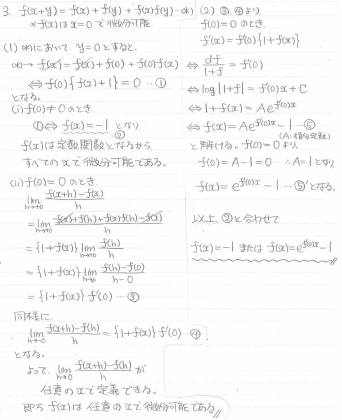 3. f(x+y) = f(x) + f(y) + f(x)f(y) …(*)
* f(x)はx=0で微分可能
(1) (*)において, y=0とすると,
(*)→ f(x) = f(x) + f(0) + f(0)f(x)
⇔ f(0){f(x)+1} = 0 …①
となる。
(i) f(0)≠0のとき
①⇔ f(x) = -1 となり
②
f(x)は定数関数となるから
すべてのxで微分可能である。
(ii) f(0)=0のとき
lim h→+0 f(x+h)-f(x) / h
= lim h→+0 f(x)+f(h)+f(x)f(h)-f(x) / h
= {1+f(x)} lim h→+0 f(h) / h
= {1+f(x)} lim h→+0 f(h)-f(0) / h-0
= {1+f(x)} f'(0) …③
同様に
lim h→-0 f(x+h)-f(h) / h = {1+f(x)} f'(0) ④
となる。
よって, lim h→0 f(x+h)-f(h) / h が
任意のxで定義できる。
即ち f(x)は任意のxで微分可能である
(2) ③④より,
f(0)=0のとき,
f'(x) = f'(0){1+f(x)}
⇔ df / 1+f = f'(0)
⇔ log|1+f| = f'(0)x + C
⇔ 1+f(x) = Ae^{f'(0)x}
⇔ f(x) = Ae^{f'(0)x} - 1 …⑤
(A: 積分定数)
と解ける。f(0)=0より,
f(0) = A-1 = 0 ∴A=1となり
f(x) = e^{f'(0)x} - 1 …⑤'となる。
以上, ②と合わせて
f(x) = -1 または f(x) = e^{f'(0)x} - 1